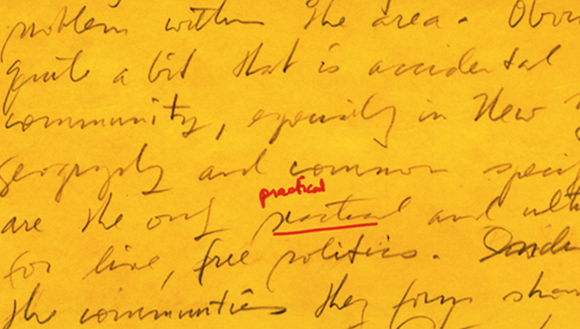 problem within the area. Obvi
quite a bit that is accidental
community, especially in New
geography and common speci
practical
are the only practical and ulti
for live, free politics.
the communities they form shou